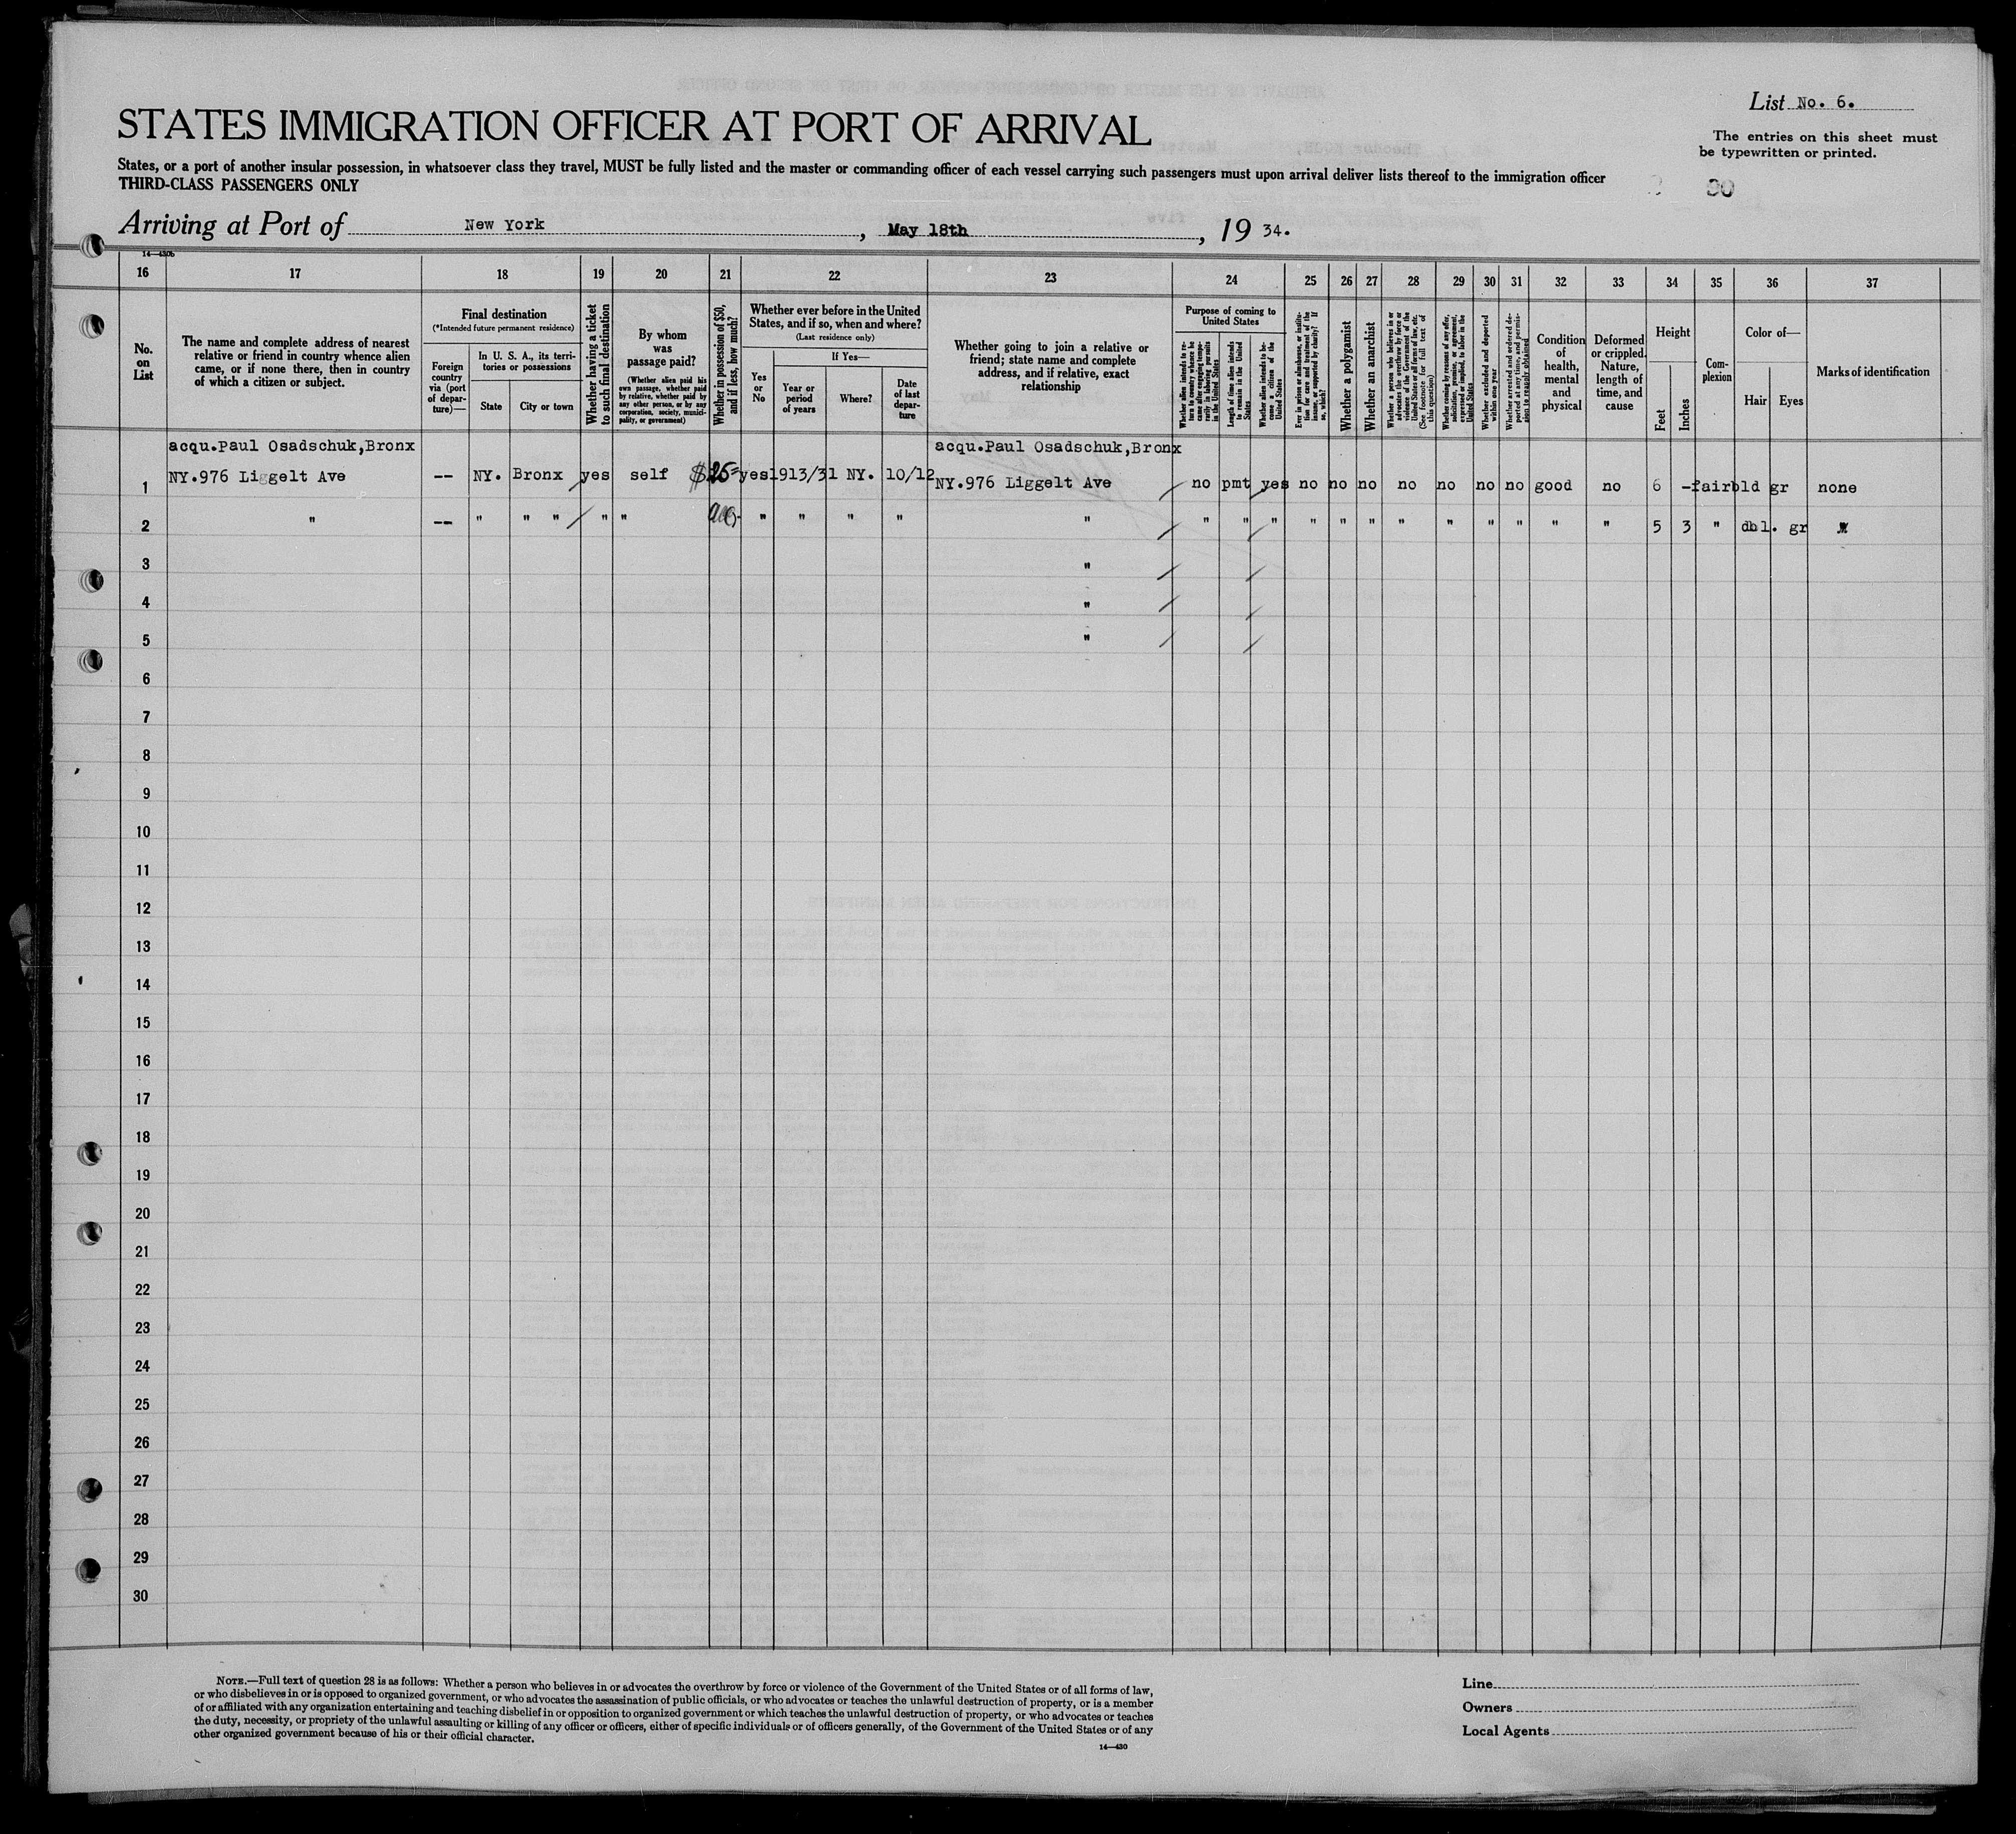 List No. 6.
STATES IMMIGRATION OFFICER AT PORT OF ARRIVAL
The entries on this sheet must
be typewritten or printed.
States, or a port of another insular possession, in whatsoever class they travel, MUST be fully listed and the master or commanding officer of each vessel carrying such passengers must upon arrival deliver lists thereof to the immigration officer
THIRD-CLASS PASSENGERS ONLY
30
Arriving at Port of New York, May 18th, 19 34.
14—430b
16 17 18 19 20 21 22 23 24 25 26 27 28 29 30 31 32 33 34 35 36 37
No.
on
List
The name and complete address of nearest
relative or friend in country whence alien
came, or if none there, then in country
of which a citizen or subject.
Final destination
(*Intended future permanent residence)
Foreign
country
via (port
of depar-
ture)—
In U. S. A., its terri-
tories or possessions
State
City or town
Whether having a ticket
to such final destination
By whom
was
passage paid?
(Whether alien paid his
own passage, whether paid
by relative, whether paid by
any other person, or by any
corporation, society, munici-
pality, or government)
Whether in possession of $50,
and if less, how much?
Whether ever before in the United
States, and if so, when and where?
(Last residence only)
Yes
or
No
If Yes—
Year or
period
of years
Where?
Date
of last
depar-
ture
Whether going to join a relative or
friend; state name and complete
address, and if relative, exact
relationship
Purpose of coming to
United States
Whether alien intends to re-
turn to country whence he
came after engaging tempo-
rarily in laboring pursuits
in the United States
Length of time alien intends
to remain in the United
States
Whether alien intends to be-
come a citizen of the
United States
Ever in prison or almshouse, or institu-
tion for care and treatment of the
insane, or supported by charity? If
so, which?
Whether a polygamist
Whether an anarchist
Whether a person who believes in or
advocates the overthrow by force or
violence of the Government of the
United States or all forms of law, etc.
(See footnote for full text of
this question)
Whether coming by reason of any offer,
solicitation, promise, or agreement,
expressed or implied, to labor in the
United States
Whether excluded and deported
within one year
Whether arrested and ordered de-
ported at any time, and permis-
sion to reapply obtained
Condition
of
health,
mental
and
physical
Deformed
or crippled.
Nature,
length of
time, and
cause
Height
Feet
Inches
Com-
plexion
Color of—
Hair
Eyes
Marks of identification
acqu.Paul Osadschuk,Bronx acqu.Paul Osadschuk,Bronx
1 NY.976 Liggelt Ave -- NY. Bronx yes self $25= yes 1913/31 NY. 10/12 NY.976 Liggelt Ave no pmt yes no no no no no no no good no 6 - fair bld gr none
2 " -- " " " " " " " " " " " " " " " " " " " " " " 5 3 " dbl. gr "
3 "
4 "
5 "
6
7
8
9
10
11
12
13
14
15
16
17
18
19
20
21
22
23
24
25
26
27
28
29
30
NOTE.—Full text of question 28 is as follows: Whether a person who believes in or advocates the overthrow by force or violence of the Government of the United States or of all forms of law,
or who disbelieves in or is opposed to organized government, or who advocates the assassination of public officials, or who advocates or teaches the unlawful destruction of property, or is a member
of or affiliated with any organization entertaining and teaching disbelief in or opposition to organized government or which teaches the unlawful destruction of property, or who advocates or teaches
the duty, necessity, or propriety of the unlawful assaulting or killing of any officer or officers, either of specific individuals or of officers generally, of the Government of the United States or of any
other organized government because of his or their official character.
14—430
Line
Owners
Local Agents